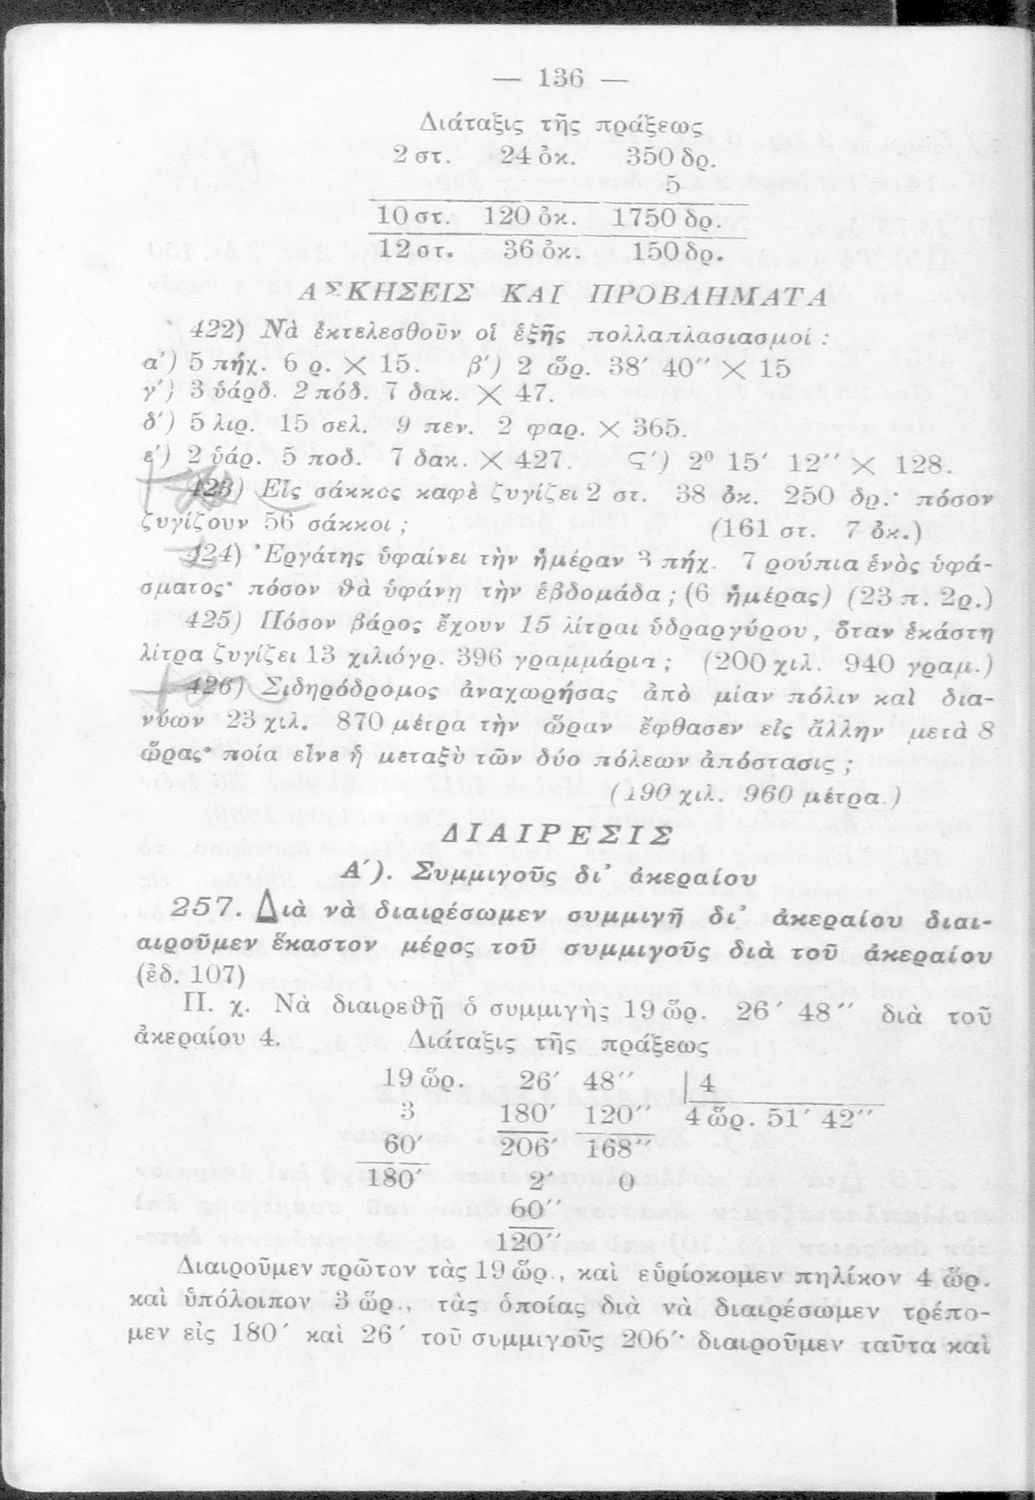 — 136 —
Διάταξις τῆς πράξεως
2 στ. 24 ὀκ. 350 δρ.
5
10 στ. 120 ὀκ. 1750 δρ.
12 στ. 36 ὀκ. 150 δρ.
ΑΣΚΗΣΕΙΣ ΚΑΙ ΠΡΟΒΛΗΜΑΤΑ
422) Νὰ ἐκτελεσθοῦν οἱ ἑξῆς πολλαπλασιασμοί :
α') 5 πήχ. 6 ρ. × 15. β') 2 ὧρ. 38′ 40″ × 15
γ') 3 ὑάρδ. 2 πόδ. 7 δακ. × 47.
δ') 5 λιρ. 15 σελ. 9 πεν. 2 φαρ. × 365.
ε') 2 ὑάρ. 5 ποδ. 7 δακ. × 427. Ϛ') 2⁰ 15′ 12″ × 128.
423) Εἷς σάκκος καφὲ ζυγίζει 2 στ. 38 ὀκ. 250 δρ.· πόσον
ζυγίζουν 56 σάκκοι ; (161 στ. 7 ὀκ.)
424) Ἐργάτης ὑφαίνει τὴν ἡμέραν 3 πήχ. 7 ρούπια ἑνὸς ὑφά-
σματος· πόσον θὰ ὑφάνῃ τὴν ἑβδομάδα ; (6 ἡμέρας) (23 π. 2ρ.)
425) Πόσον βάρος ἔχουν 15 λίτραι ὑδραργύρου, ὅταν ἑκάστη
λίτρα ζυγίζει 13 χιλιόγρ. 396 γραμμάρια ; (200 χιλ. 940 γραμ.)
426) Σιδηρόδρομος ἀναχωρήσας ἀπὸ μίαν πόλιν καὶ δια-
νύων 23 χιλ. 870 μέτρα τὴν ὥραν ἔφθασεν εἰς ἄλλην μετὰ 8
ὥρας· ποία εἶνε ἡ μεταξὺ τῶν δύο πόλεων ἀπόστασις ;
(190 χιλ. 960 μέτρα.)
ΔΙΑΙΡΕΣΙΣ
Α'). Συμμιγοῦς δι' ἀκεραίου
257. Διὰ νὰ διαιρέσωμεν συμμιγῆ δι' ἀκεραίου διαι-
αιροῦμεν ἕκαστον μέρος τοῦ συμμιγοῦς διὰ τοῦ ἀκεραίου
(ἐδ. 107)
Π. χ. Νὰ διαιρεθῇ ὁ συμμιγὴς 19 ὧρ. 26′ 48″ διὰ τοῦ
ἀκεραίου 4. Διάταξις τῆς πράξεως
19 ὧρ. 26′ 48″ | 4
3 180′ 120″ 4 ὧρ. 51′ 42″
60′ 206′ 168″
180′ 2′ 0
60″
120″
Διαιροῦμεν πρῶτον τὰς 19 ὧρ., καὶ εὑρίσκομεν πηλίκον 4 ὧρ.
καὶ ὑπόλοιπον 3 ὧρ., τὰς ὁποίας διὰ νὰ διαιρέσωμεν τρέπο-
μεν εἰς 180′ καὶ 26′ τοῦ συμμιγοῦς 206′· διαιροῦμεν ταῦτα καὶ